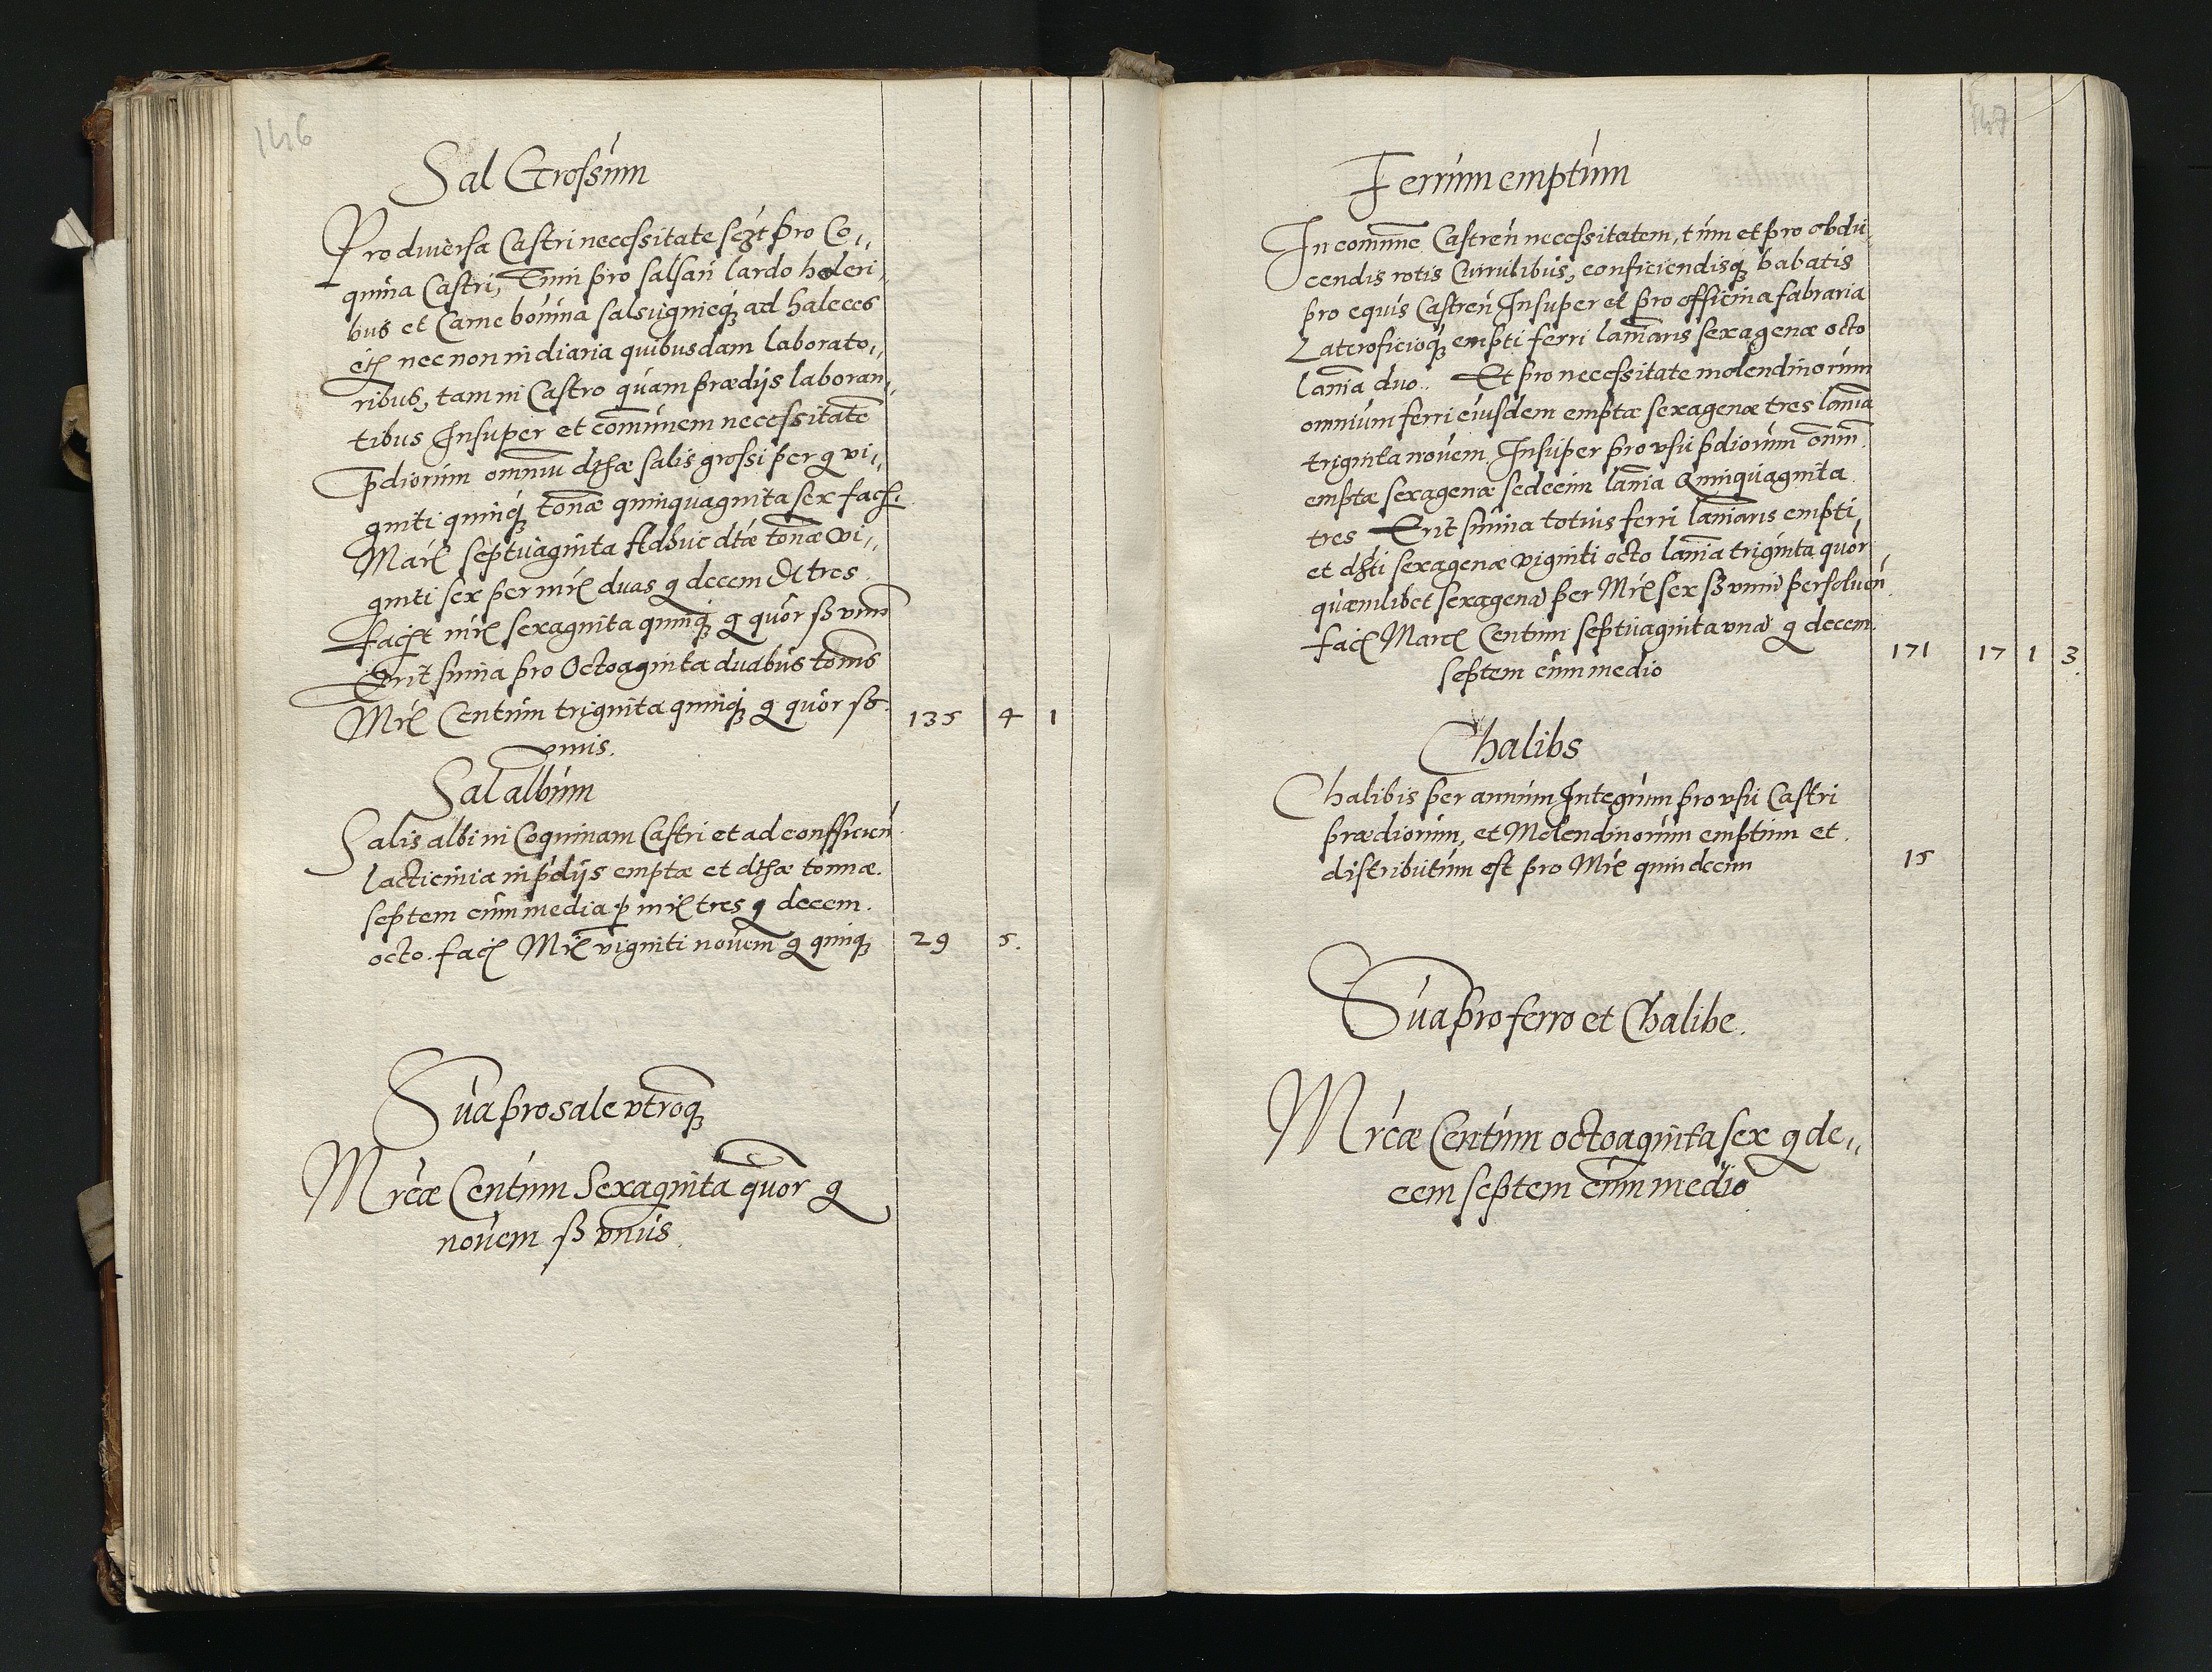 146
Sal Grossum
Pro diuersa Castri necessitate sczt pro Co„
quina Castri, Tum pro salsan lardo holeri„
bus et Carne bouina salsugineq, ad haleces
nec non in diaria quibusdam laborato„
ribus, tam in Castro quam prædijs laboran„
tibus Insuper et com̄unem necessitatē
p̄diorum omniū dtsæ salis grossi per g vi„
ginti quinq, ton̄æ quinquaginta sex
Marc septuaginta Adhuc dtæ ton̄æ vi„
ginti sex per mrc duas g decem et tres
faciūt mrc sexaginta quinq, g quor ß vnum
Erit sum̄a pro Octoaginta duabus ton̄is
Mrc Centum triginta quinq, g quor ß
vnus. 135 4 1
Sal album
Salis albi in Coquinam Castri et ad conficien
lacticinia in p̄dijs emptæ et dtsæ tonnæ.
septem cum media p mrc tres g decem.
octo. fac Mrc viginti nouem g quinq, 29 5.
Sūa pro sale vtroq,
Mrcæ Centum Sexaginta quor g
nouem ß vnus.
147
Ferrum emptum
In com̄une Castren necessitatem, tum et pro obdu„
cendis rotis Currulibus, conficiendisq, babatis
pro equis Castren Insuper et pro officina fabraria
Lateroficioq, empti ferri lam̄aris sexagenæ octo
lam̄ia duo.. Et pro necessitate molendinorum
omnium ferri eiusdem emptæ sexagenæ tres lam̄ia
triginta nouem. Insuper pro vsu p̄diorum om̄m.
emptæ sexagenæ sedecim lam̄ia Quinquaginta
tres Erit sum̄a totius ferri lam̄iaris empti,
et dsti sexagenæ viginti octo lam̄ia triginta quor,
quamlibet sexagenā per Mrc sex ß vnum persoluen
fac Marc Centum septuaginta una g decem.
septem cum medio 171 17 1 3
Chalibs
Chalibis per annum Integrum pro vsu Castri
prædiorum, et Molendinorum emptum et.
distributum est pro Mrc quindecim 15
Sūa pro ferro et Chalibe.
Mrcæ Centum octoaginta sex g de„
cem septem cum medio